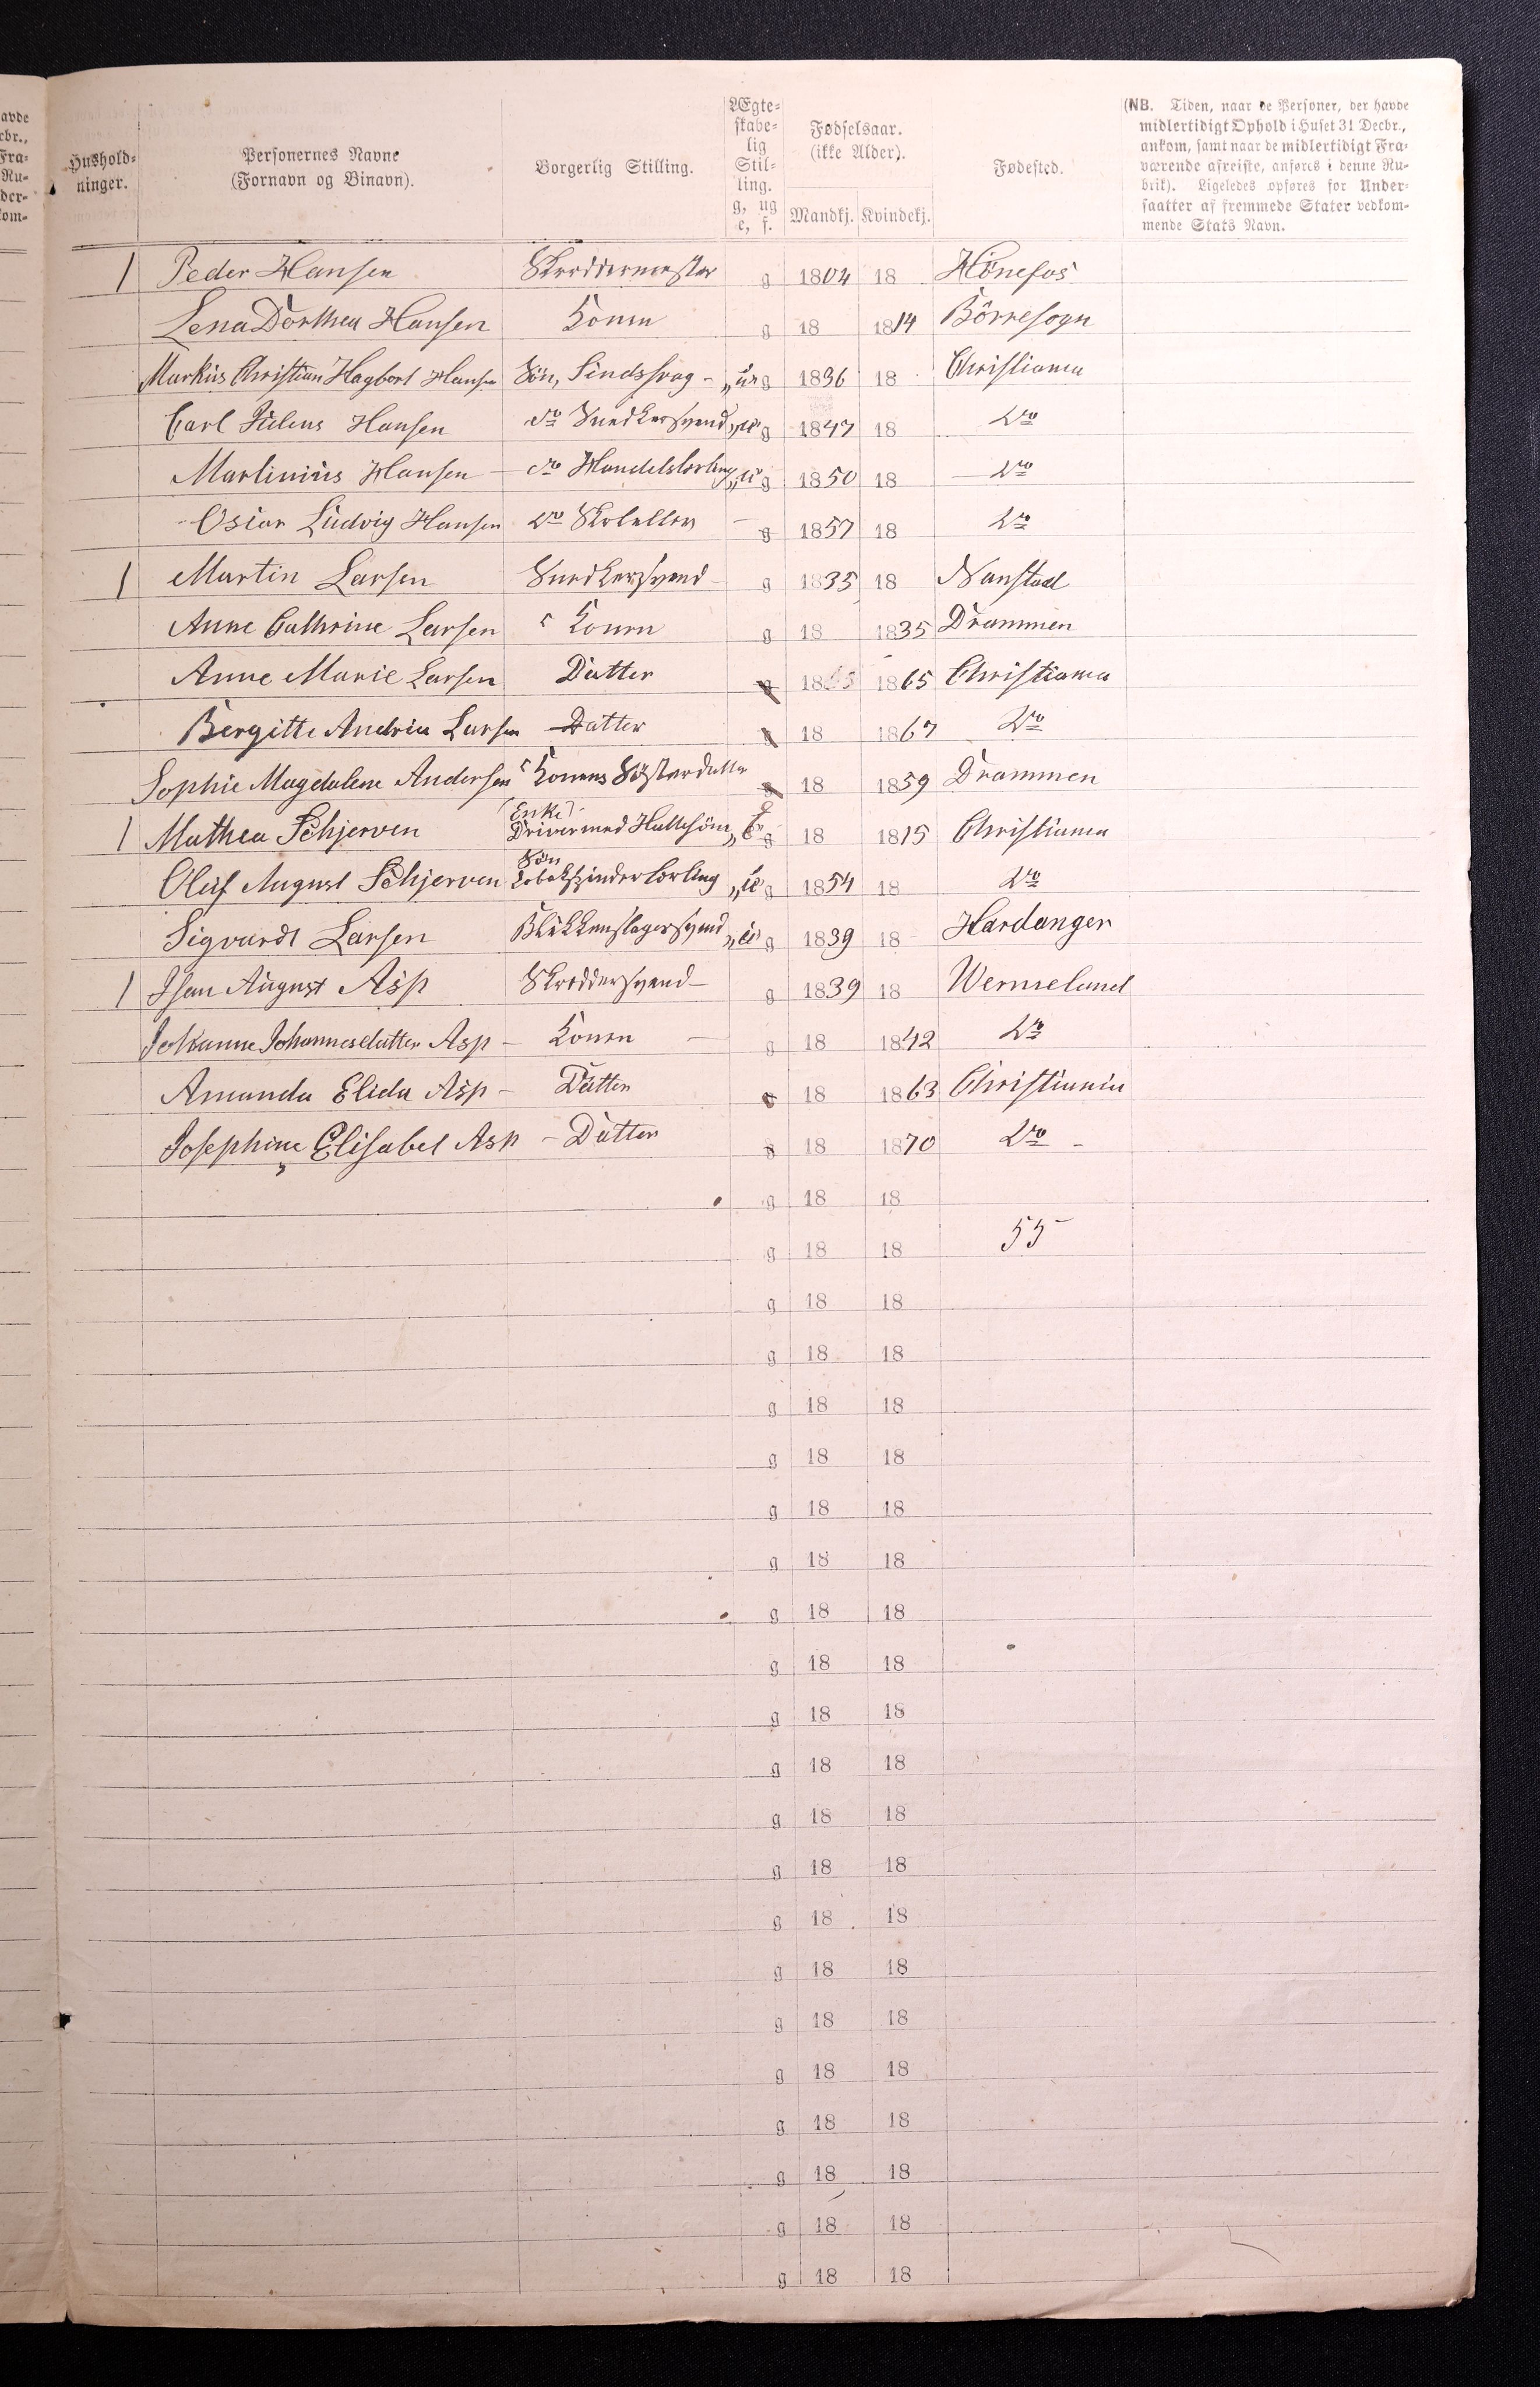 avde
cbr.,
Fra-
Ru-
der-
kom-
Hushold-
ninger.
Personernes Navne
(Fornavn og Binavn).
Borgerlig Stilling.
Ægte-
skabe-
lig
Stil-
ling.
g, ug
e, f.
Fødselsaar.
(ikke Alder).
Mandkj. Kvindekj.
Fødested.
(NB. Tiden, naar de Personer, der havde
midlertidigt Ophold i Huset 31 Decbr.,
ankom, samt naar de midlertidigt Fra-
værende afreiste, anføres i denne Ru-
brik). Ligeledes opføres for Under-
saatter af fremmede Stater vedkom-
mende Stats Navn.
1 Peder Hansen Skreddermester g 1804 18 Hönefos
Lena Dorthea Hansen Konen g 18 1814 Börresogn
Markus Christian Hagbart Hansen Sön, Sindssvag - „u g 1836 18 Christiania
Carl Julius Hansen do Snedkersvend „u g 1847 18 Do
Martinius Hansen - do Handelslærling „u g 1850 18 Do
Oscar Ludvig Hansen Do Skoleelev - g 1857 18 Do
1 Martin Larsen Snedkersvend g 1835 18 Nanstad
Anne Cathrine Larsen Konen g 18 1835 Drammen
Anne Marie Larsen Datter g 18 1865 Christiania
Bergitte Andrea Larsen Datter g 18 1867 Do
Sophie Magdalene Andersen Konens Sösterdatter g 18 1859 Drammen
1 Mathea Schjerven (Enke) Driver med Hullesöm „e g 18 1815 Christiania
Oluf August Schjerven Sön Tobakspinderlærling „u g 1854 18 Do
Sigvardt Larsen Blikkenslagersvend „u g 1839 18 Hardanger
1 Jhan August Asp Skreddersvend g 1839 18 Wermeland
Johanne Johannesdatter Asp - Konen - g 18 1842 Do
Amanda Elida Asp - Datter g 18 1863 Christiania
Josephine Elisabet Asp - Datter g 18 1870 Do -
g 18 18
g 18 18 55
g 18 18
g 18 18
g 18 18
g 18 18
g 18 18
g 18 18
g 18 18
g 18 18
g 18 18
g 18 18
g 18 18
g 18 18
g 18 18
g 18 18
g 18 18
g 18 18
g 18 18
g 18 18
g 18 18
g 18 18